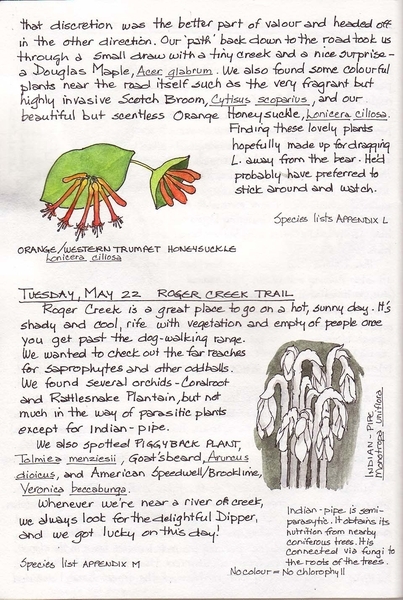 that discretion was the better part of valour and headed off
in the other direction. Our 'path' back down to the road took us
through a small draw with a tiny creek and a nice surprise –
a Douglas Maple, Acer glabrum. We also found some colourful
plants near the road itself such as the very fragrant but
highly invasive Scotch Broom, Cytisus scoparius, and our
beautiful but scentless Orange Honeysuckle, Lonicera ciliosa.
Finding these lovely plants
hopefully made up for dragging
L. away from the bear. He'd
probably have preferred to
stick around and watch.
Species lists APPENDIX L
ORANGE/WESTERN TRUMPET HONEYSUCKLE
Lonicera ciliosa
TUESDAY, MAY 22 ROGER CREEK TRAIL
Roger Creek is a great place to go on a hot, sunny day. It's
shady and cool, rife with vegetation and empty of people once
you get past the dog-walking range.
We wanted to check out the far reaches
for saprophytes and other oddballs.
We found several orchids - Coralroot
and Rattlesnake Plantain, but not
much in the way of parasitic plants
except for Indian-pipe.
We also spotted PIGGYBACK PLANT,
Tolmiea menziesii, Goat'sbeard, Aruncus
dioicus, and American Speedwell/Brooklime,
Veronica beccabunga.
Whenever we're near a river or creek,
we always look for the delightful Dipper,
and we got lucky on this day!
Species list APPENDIX M
INDIAN-PIPE
Monotropa uniflora
Indian-pipe is semi-
parasytic. It obtains its
nutrition from nearby
coniferous trees. It is
connected via fungi to
the roots of the trees.
No colour = No chlorophyll